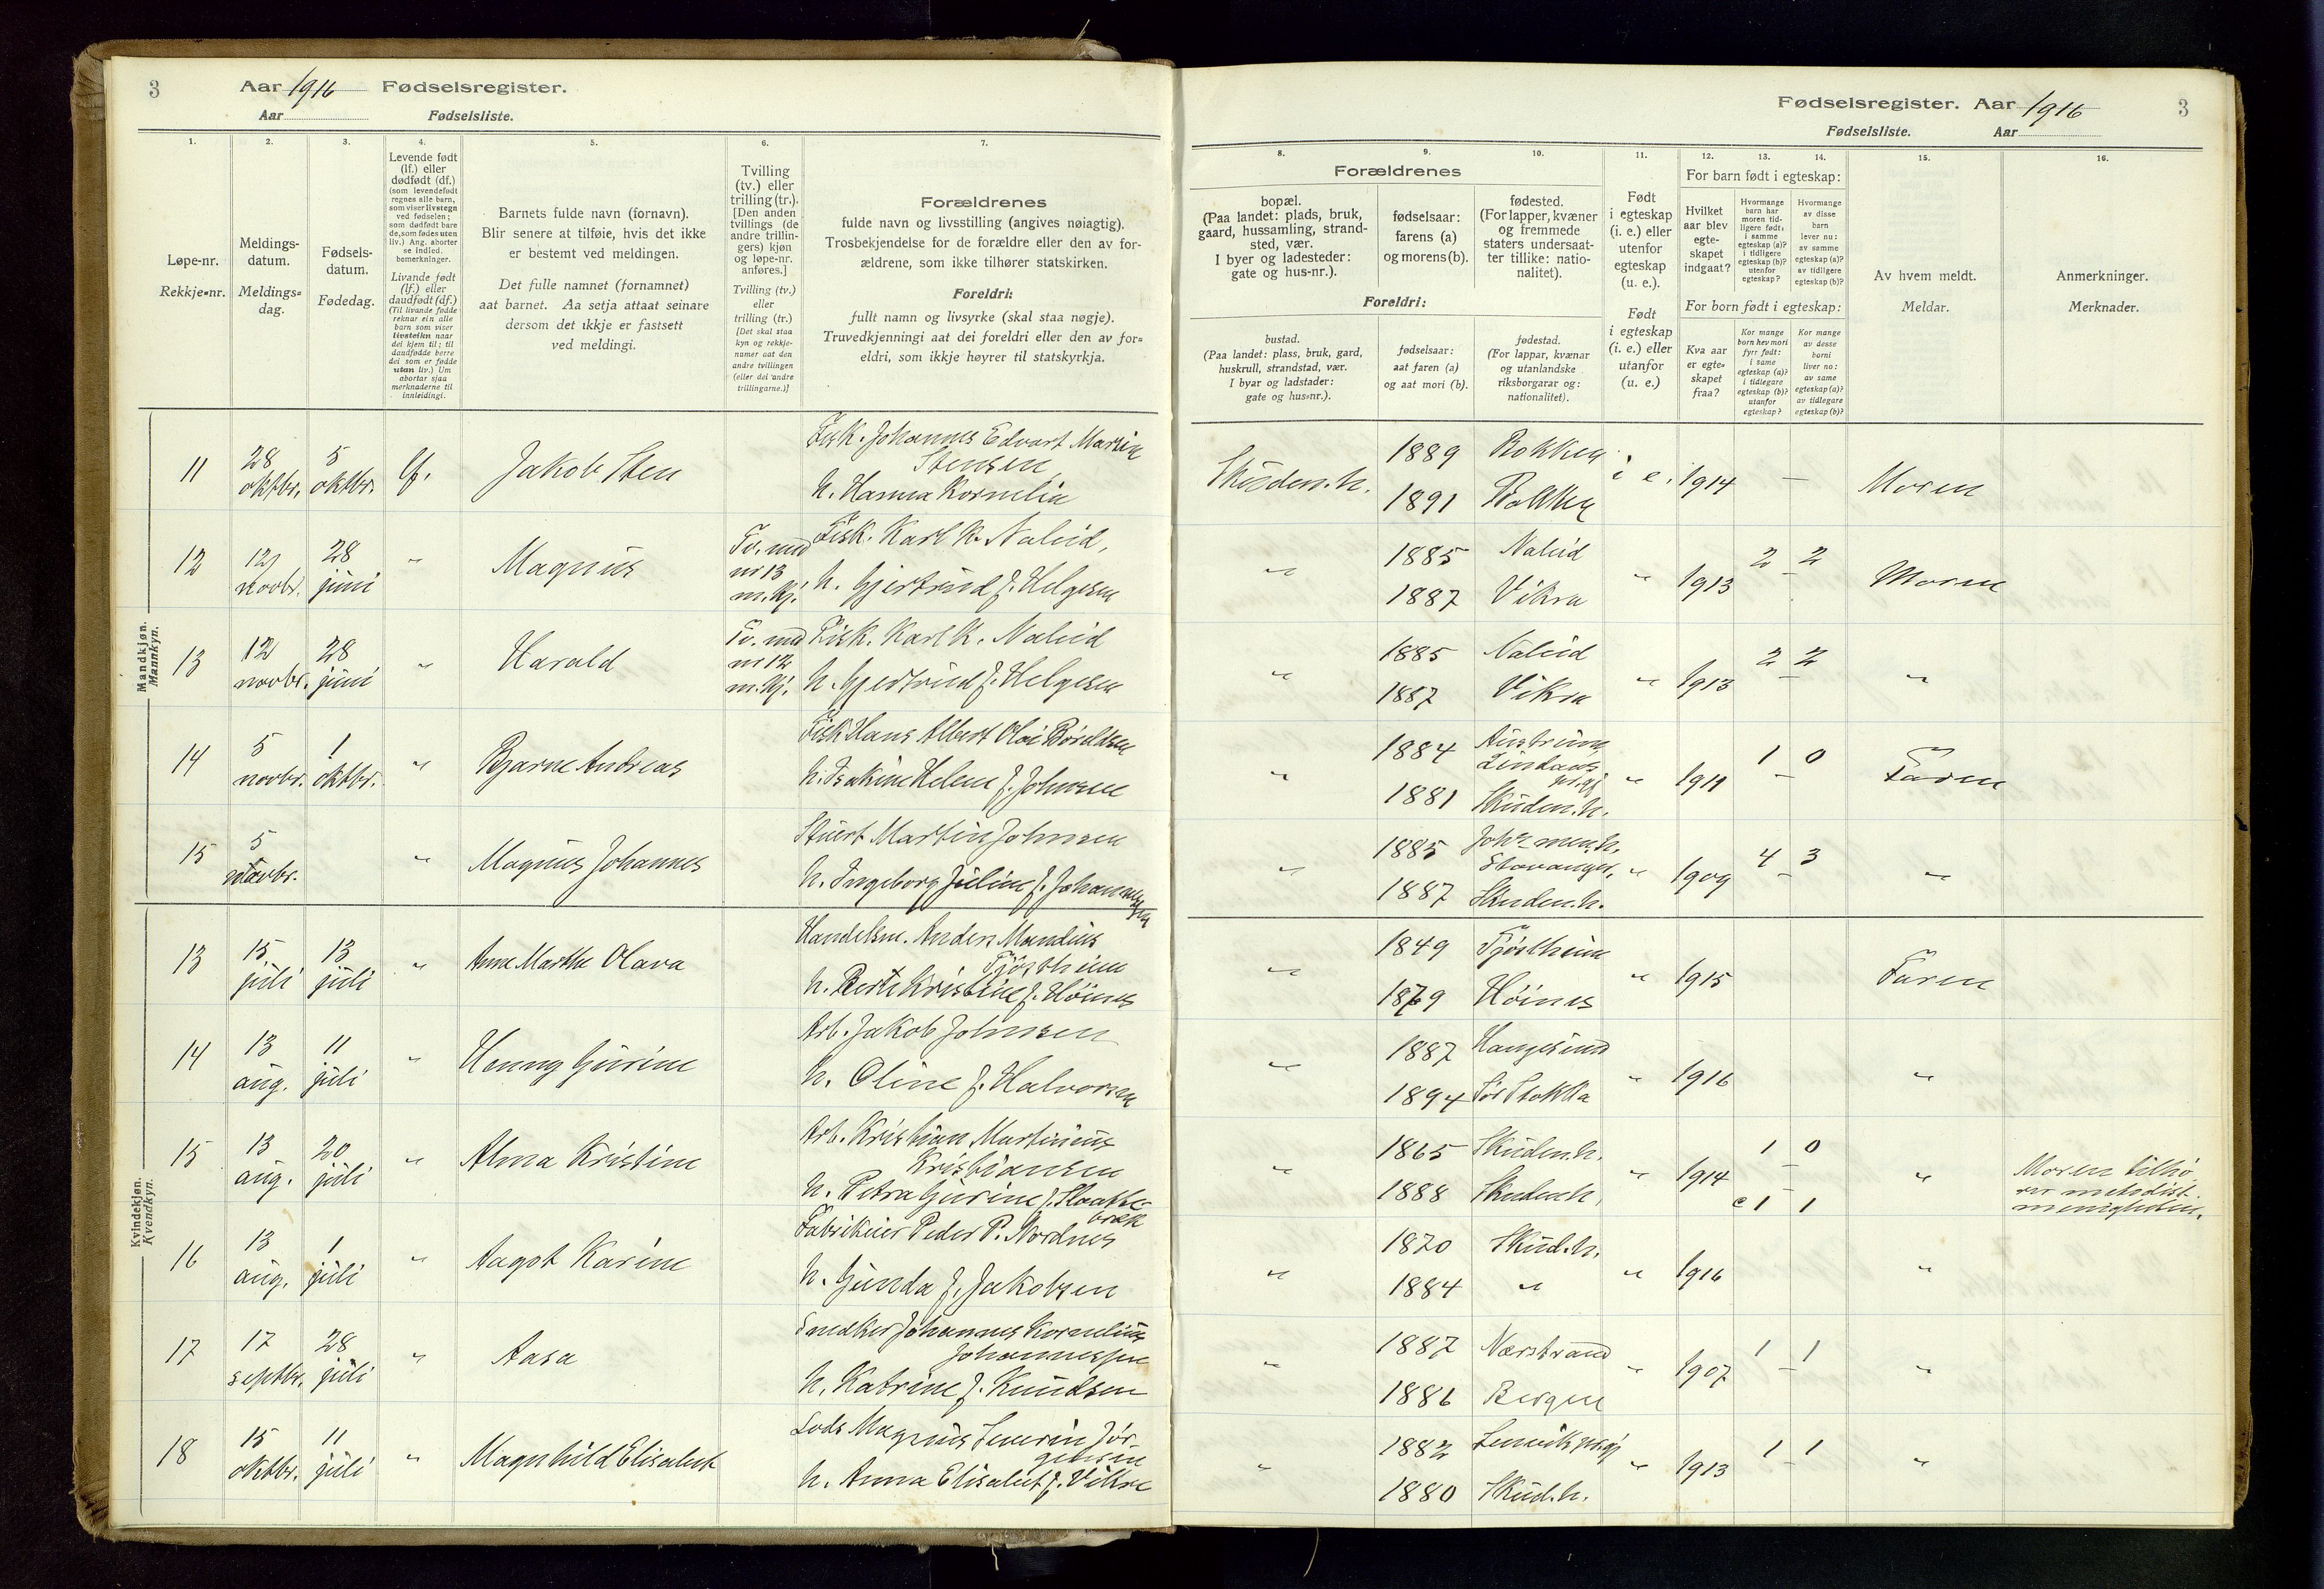 3
Aar 1916 Fødselsregister.
Aar Fødselsliste.
1.
2.
3.
4.
5.
6.
7.
Løpe-nr.
Rekkje-nr.
Meldings-
datum.
Meldings-
dag.
Fødsels-
datum.
Fødedag.
Levende født
(lf.) eller
dødfødt (df.)
(som levendefødt
regnes alle barn,
som viser livstegn
ved fødselen;
som dødfødt bare
de, som fødes uten
liv.) Ang. aborter
se indled.
bemerkninger.
Livande født
(lf.) eller
daudfødt (df.)
(Til livande fødde
reknar ein alle
born som viser
livsteikn naar
dei kjem til; til
daudfødde berre
dei som er fødde
utan liv.) Um
abortar sjaa
merknaderne til
innleidingi.
Barnets fulde navn (fornavn).
Blir senere at tilføie, hvis det ikke
er bestemt ved meldingen.
Det fulle namnet (fornamnet)
aat barnet. Aa setja attaat seinare
dersom det ikkje er fastsett
ved meldingi.
Tvilling
(tv.) eller
trilling (tr.).
[Den anden
tvillings (de
andre trillin-
gers) kjøn
og løpe-nr.
anføres.]
Tvilling (tv.)
eller
trilling (tr.)
[Det skal staa
kyn og rekkje-
namer aat den
andre tvillingen
(eller dei andre
trillingarne.)]
Forældrenes
fulde navn og livsstilling (angives nøiagtig).
Trosbekjendelse for de forældre eller den av for-
ældrene, som ikke tilhører statskirken.
Foreldri:
fullt namn og livsyrke (skal staa nøgje).
Truvedkjenningi aat dei foreldri eller den av for-
eldri, som ikkje høyrer til statskyrkja.
Mandkjøn.
Mannkyn.
11 28 oktbr. 5 oktbr. lf. Jakob Sten
Fisk. Johannes Edvart Martin
Stensen
h. Hanna Kornelia
12 12 novbr. 28 juni " Magnus
Tv. med
nr 13
m.kj.
Fisk. Karl K. Nalud,
h. Gjertrud f. Helgesen
13 12 novbr. 28 juni " Harald
Tv. med
nr 12
m.kj.
Fisk. Karl K. Nalud
h. Gjertrud f. Helgesen
14 5 novbr. 1 oktbr. " Bjarne Andreas
Fisk Hans Albert Olai
h. Helene f. Johnsen
15 5 novbr. " Magnus Johannes
Stuert Martin Johnsen
h. Ingeborg Juline f. Johannessen
Kvindekjøn.
Kvendkyn.
13 15 juli 13 juli " Anne Marthe Olava
Handelsm. Anders Mandius
Fjøstheim
h. Berte Kristine f. Høines
14 13 aug. 11 juli " Henny Gurine
Arb. Jakob Johnsen
h. Oline f. Halvorsen
15 13 aug. 20 juli " Alma Kristine
Arb. Kristian Martinius
Kristiansen
h. Petra Gurine f. Slaatte-
bræk
16 13 aug. 1 juli " Aagot Karine
Fabrikeier Peder P. Nordnes
h. Gunda f. Jakobsen
17 17 septbr. 28 juli " Aasa
Snedker Johannes Kornelius
Johannessen
h. Katrine f. Knudsen
18 15 oktbr. 11 juli " Magnhild Elisabet
Lods Magnus Severin Jør-
gensen
h. Anna Elisabet f. Vikre
Fødselsregister. Aar 1916
3
Fødselsliste. Aar
8.
9.
10.
11.
12.
13.
14.
15.
16.
Forældrenes
bopæl.
(Paa landet: plads, bruk,
gaard, hussamling, strand-
sted, vær.
I byer og ladesteder:
gate og hus-nr.).
fødselsaar:
farens (a)
og morens (b).
fødested.
(For lapper, kvæner
og fremmede
staters undersaat-
ter tillike: natio-
nalitet).
Foreldri:
bustad.
(Paa landet: plass, bruk, gard,
huskrull, strandstad, vær.
I byar og ladstader:
gate og hus-nr.).
fødselsaar:
aat faren (a)
og aat mori (b).
fødestad.
(For lappar, kvænar
og utanlandske
riksborgarar og:
nationalitet).
Født
i egteskap
(i. e.) eller
utenfor
egteskap
(u. e.).
Født
i egteskap
(i. e.) eller
utanfor
(u. e.)
For barn født i egteskap:
Hvilket
aar blev
egte-
skapet
indgaat?
Hvormange
barn har
moren tid-
ligere født:
i samme
egteskap (a)?
i tidligere
egteskap (b)?
utenfor
egteskap?
Hvormange
av disse
barn
lever nu:
av samme
egteskap (a)?
av tidligere
egteskap (b)?
For born født i egteskap:
Kva aar
er egte-
skapet
fraa?
Kor mange
born hev mori
fyrr født:
i same
egteskap (a)?
i tidlegare
egteskap (b)?
utanfor
egteskap?
Kor mange
av desse
borni
liver no:
av same
egteskap (a)?
av tidlegare
egteskap (b)?
Av hvem meldt.
Meldar.
Anmerkninger.
Merknader.
Skuden.h. 1889 Bokken i e. 1914 — Moren
1891 Bokken
" 1885 Nalud " 1913 2 2 Moren
1887 Vikra
" 1885 Nalud " 1913 2 2 "
1887 Vikra
" 1884 Austrum
Lindaas
prgj " 1911 1 0 Faren
1881 Skuden.h.
" 1885 Joh. men.h.
Stavanger, " 1909 4 3 "
1887 Skuden.h.
" 1849 Fjøstheim " 1915 Faren
1879 Høines
" 1887 Haugesund " 1916 "
1894 Sør Stokka
" 1865 Skuden.h. " 1914 1 0 "
1888 Skuden.h. c 1 1
Moren tilhø-
rer metodist-
menigheten.
" 1870 Skud.h. " 1916 "
1884 "
" 1887 Nærstrand " 1907 1 1 "
1886 Bergen
" 1882 prgj " 1913 1 1 "
1880 Skud.h.